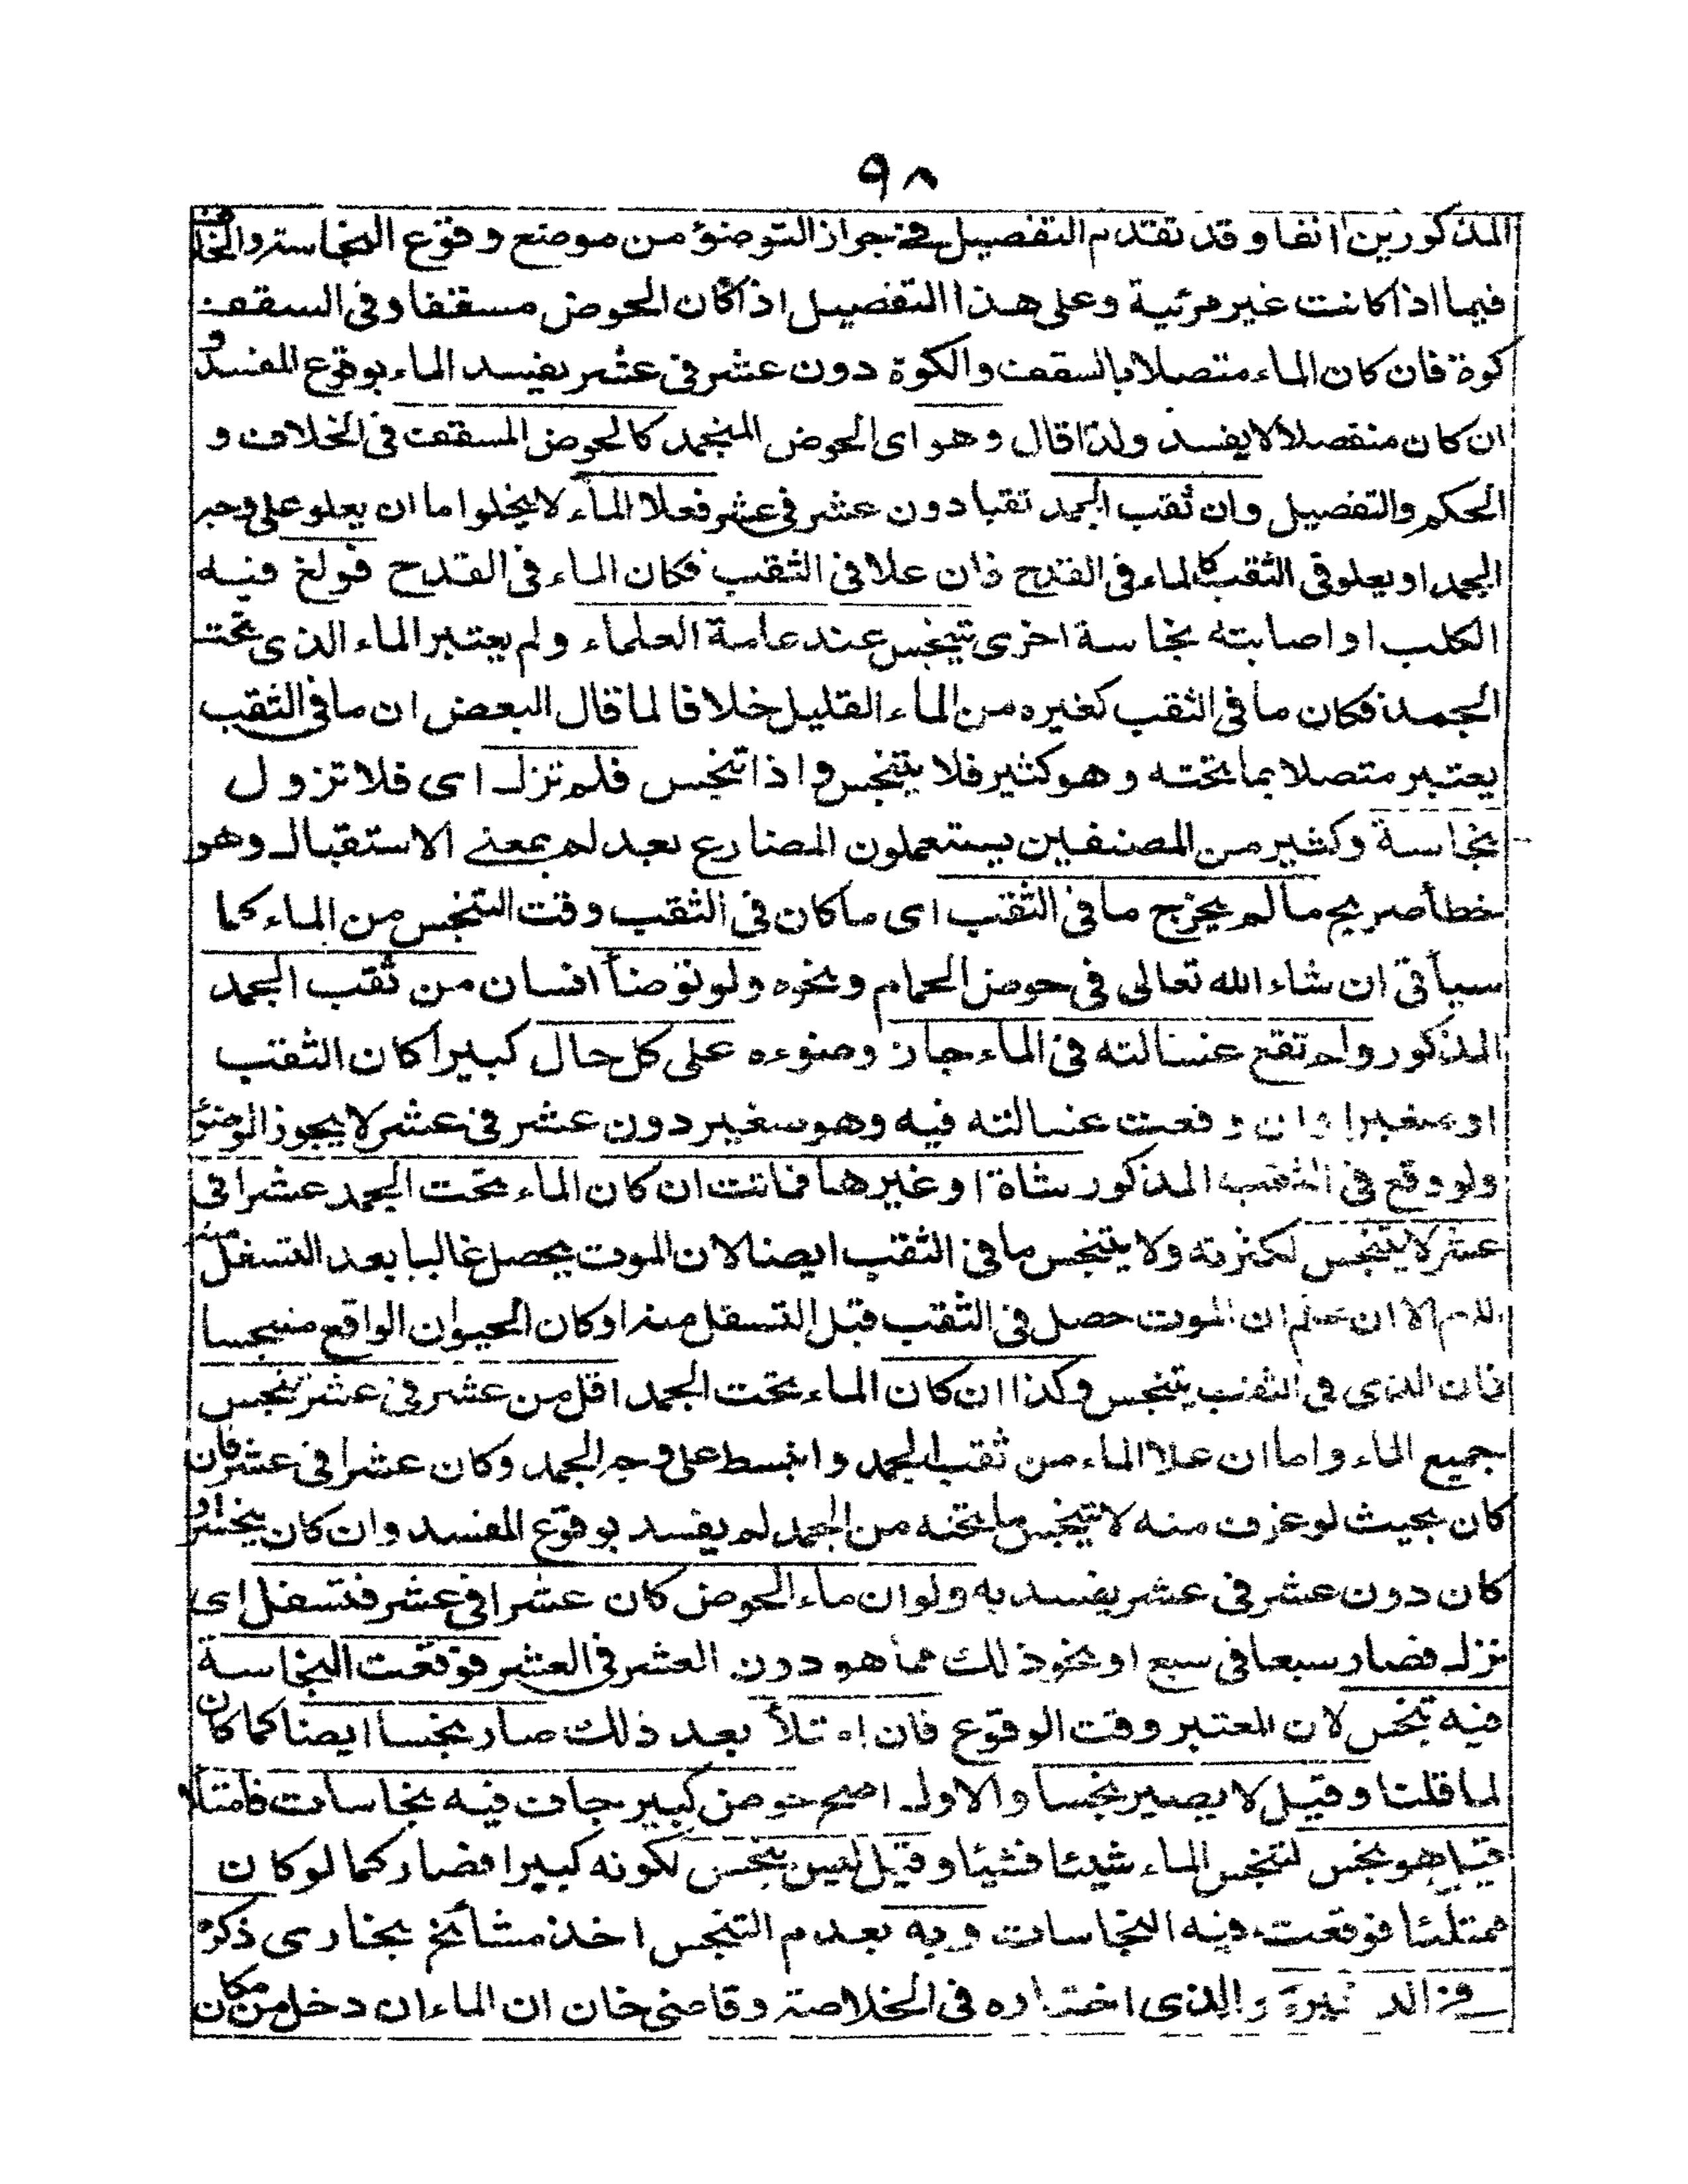 ٩٨
المذكورين انفا وقد تقدم التفصيل في جواز التوضؤ من موضع وقوع النجاسة والخلاف
فيما اذا كانت غير مرئية وعلى هذا التفصيل اذا كان الحوض مسقفا وفى السقف
كوة فان كان الماء متصلا بالسقف والكوة دون عشر فى عشر يفسد الماء بوقوع المفسد و
ان كان منفصلا لا يفسد ولذا قال وهو اى الحوض المنجمد كالحوض المسقف فى الخلاف و
الحكم والتفصيل وان ثقب الجمد ثقبا دون عشر فى عشر فعلا الماء لا يخلوا اما ان يعلو على وجه
الجمد او يعلو فى الثقب كالماء فى القدح فان علا فى الثقب فكان الماء فى القدح فولغ فيه
الكلب او اصابته نجاسة اخرى يتنجس عند عامة العلماء ولم يعتبر الماء الذى تحت
الجمد فكان ما فى الثقب كغيره من الماء القليل خلافا لما قال البعض ان ما فى الثقب
يعتبر متصلا بما تحته وهو كثير فلا يتنجس واذا تنجس فلم تزل اى فلا تزول
نجاسة وكثير من المصنفين يستعملون المضارع بعد لم بمعنى الاستقبال وهو
خطأ صريح ما لم يخرج ما فى الثقب اى ما كان فى الثقب وقت التنجس من الماء كما
سيأتى ان شاء الله تعالى فى حوض الحمام ونحوه ولو توضأ انسان من ثقب الجمد
المذكور ولم تقع غسالته فى الماء جاز وضوءه على كل حال كبيرا كان الثقب
او صغيرا وان وقعت غسالته فيه وهو صغير دون عشر فى عشر لا يجوز الوضوء
ولو وقع فى الثقب المذكور شاة او غيرها فماتت ان كان الماء تحت الجمد عشرا فى
عشر لا يتنجس لكثرته ولا يتنجس ما فى الثقب ايضا لان الموت يحصل غالبا بعد التسفل
اللهم الا ان علم ان الموت حصل فى الثقب قبل التسفل منه او كان الحيوان الواقع متنجسا
فان الذى فى الثقب يتنجس وكذا ان كان الماء تحت الجمد اقل من عشر فى عشر تنجس
جميع الماء واما ان علا الماء من ثقب الجمد وانبسط على وجه الجمد وكان عشرا فى عشر فان
كان بحيث لو غرف منه لا ينحسر ما تحته من الجمد لم يفسد بوقوع المفسد وان كان ينحسر او
كان دون عشر فى عشر يفسد به ولو ان ماء الحوض كان عشرا فى عشر فتسفل اى
نزل فصار سبعا فى سبع او نحو ذلك مما هو دون العشر فى العشر فوقعت النجاسة
فيه تنجس لان المعتبر وقت الوقوع فان امتلأ بعد ذلك صار نجسا ايضا كما كان
لما قلنا وقيل لا يصير نجسا والاول اصح حوض كبير جاف فيه نجاسات فامتلأ
قيل هو نجس لتنجس الماء شيئا فشيئا وقيل ليس بنجس لكونه كبيرا فصار كما لو كان
ممتلئا فوقعت فيه النجاسات وبه بعدم التنجس اخذ مشائخ بخارى ذكره
فى الذخيرة والذى اختاره فى الخلاصة وقاضى خان ان الماء ان دخل من مكان